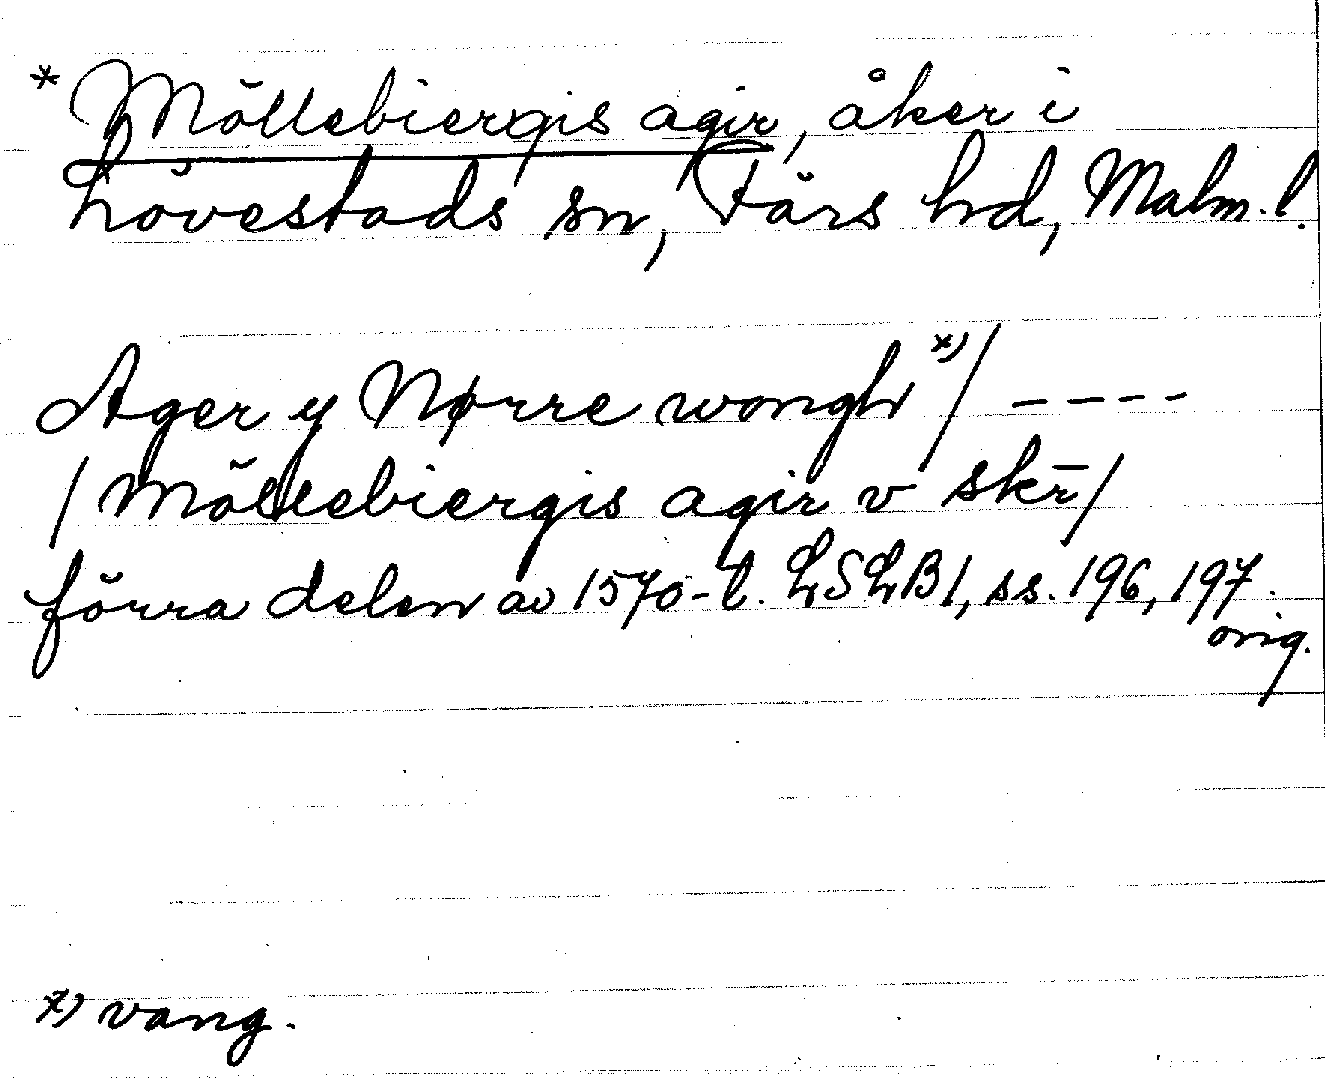 * Möllebiergis agir, åker i
Lövestads sn, Färs hd, Malm. l.
Ager y Nørre wongh x) / - - - -
/ Möllebiergis agir v skr̄ /
förra delen av 1570-t. LSLB1, ss. 196, 197.
orig.
x) vang.